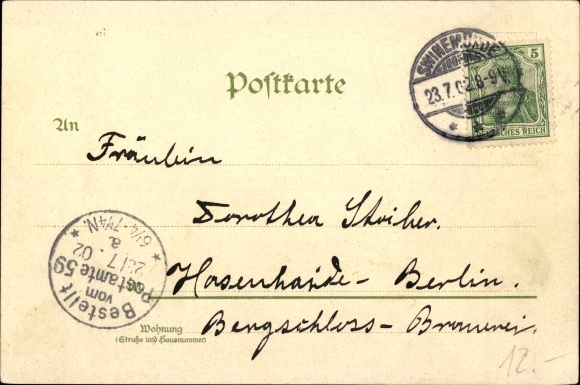 Postkarte
SWINEMÜNDE
23.7.02.8-9V.
5
DEUTSCHES REICH
An
Fräulein
Dorothea Stoiber.
Hasenhaide - Berlin.
Bergschloss - Brauerei.
Wohnung
(Straße und Hausnummer)
Bestellt
vom
Postamte 59
23/7 02
a.
6¼-7¼N.
12.-